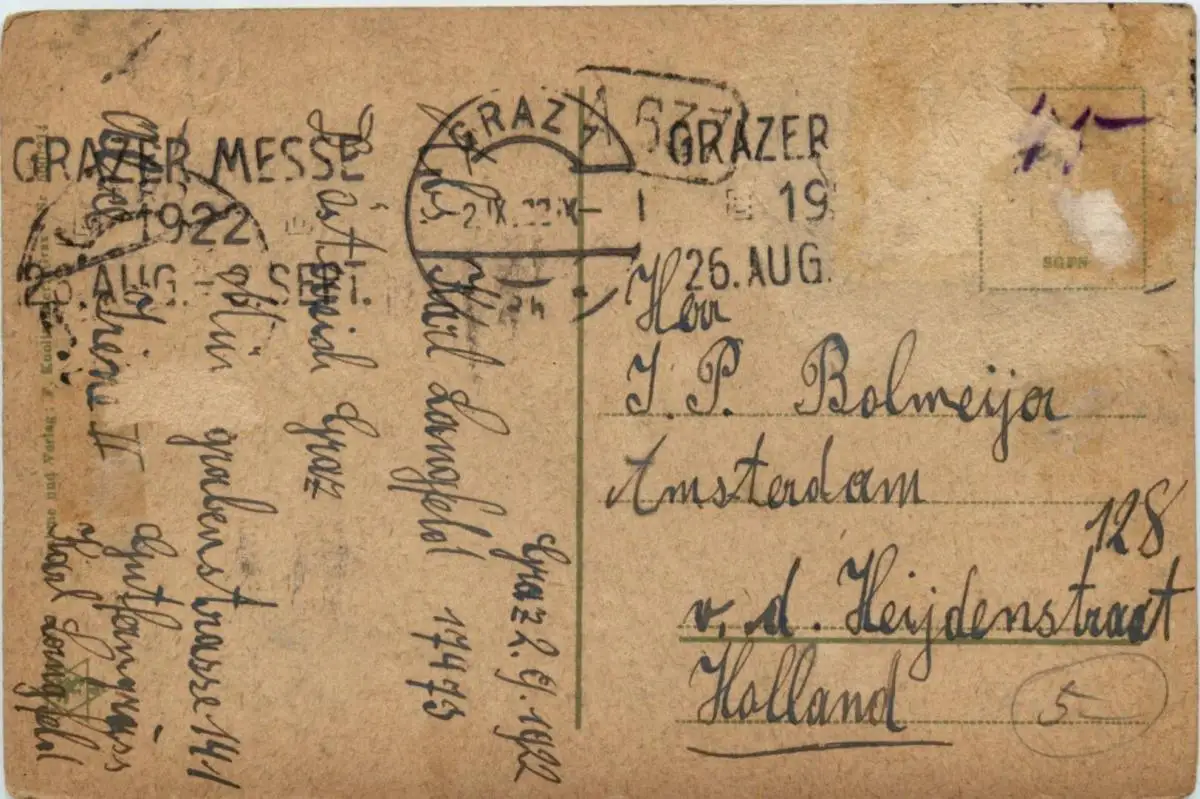 GRAZER MESSE
1922
AUG. - SEPT.
GRAZ
2.IX.22
A 633
GRAZER
19
26. AUG.
SGPS
Herr
J. P. Bolmeijer
Amsterdam
128
v. d. Heijdenstraat
Holland
5-
Graz 2. 9. 1922
Karl Langfeld 17473
Österreich Graz
grabenstrasse 141
Gutfangruss
Karl Langfeld
und Verlag F. Knoll